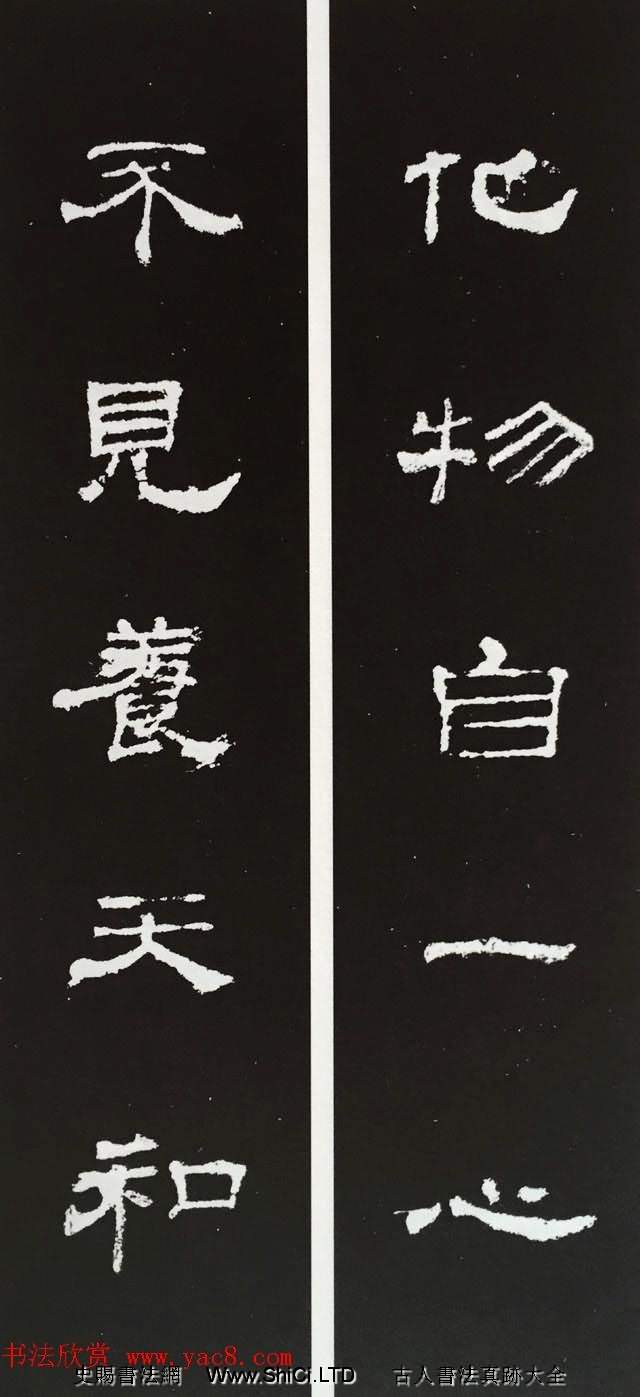 化物自一心
不見養天和
书法欣赏 www.yac8.com
史賜書法網 Www.ShiCi.LTD 古人書法真跡大全